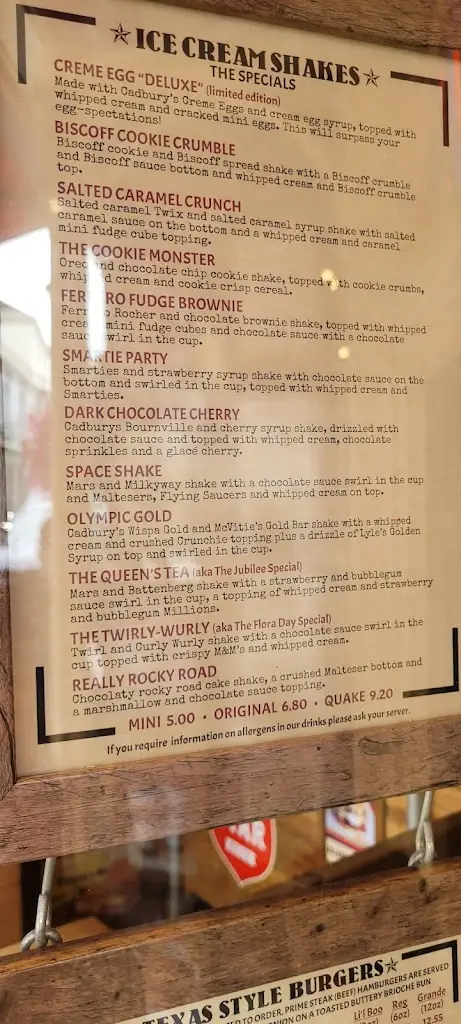 ☆ ICE CREAM SHAKES ☆
THE SPECIALS
CREME EGG "DELUXE" (limited edition)
Made with Cadbury's Creme Eggs and cream egg syrup, topped with
whipped cream and cracked mini eggs. This will surpass your
egg-spectations!
BISCOFF COOKIE CRUMBLE
Biscoff cookie and Biscoff spread shake with a Biscoff crumble
and Biscoff sauce bottom and whipped cream and Biscoff crumble
top.
SALTED CARAMEL CRUNCH
Salted caramel Twix and salted caramel syrup shake with salted
caramel sauce on the bottom and a whipped cream and caramel
mini fudge cube topping.
THE COOKIE MONSTER
Oreo and chocolate chip cookie shake, topped with cookie crumbs,
whipped cream and cookie crisp cereal.
FERRERO FUDGE BROWNIE
Ferrero Rocher and chocolate brownie shake, topped with whipped
cream mini fudge cubes and chocolate sauce with a chocolate
sauce swirl in the cup.
SMARTIE PARTY
Smarties and strawberry syrup shake with chocolate sauce on the
bottom and swirled in the cup, topped with whipped cream and
Smarties.
DARK CHOCOLATE CHERRY
Cadburys Bournville and cherry syrup shake, drizzled with
chocolate sauce and topped with whipped cream, chocolate
sprinkles and a glacé cherry.
SPACE SHAKE
Mars and Milkyway shake with a chocolate sauce swirl in the cup
and Maltesers, Flying Saucers and whipped cream on top.
OLYMPIC GOLD
Cadbury's Wispa Gold and McVitie's Gold Bar shake with a whipped
cream and crushed Crunchie topping plus a drizzle of Lyle's Golden
Syrup on top and swirled in the cup.
THE QUEEN'S TEA (aka The Jubilee Special)
Mars and Battenberg shake with a strawberry and bubblegum
sauce swirl in the cup, a topping of whipped cream and strawberry
and bubblegum Millions.
THE TWIRLY-WURLY (aka The Flora Day Special)
Twirl and Curly Wurly shake with a chocolate sauce swirl in the
cup topped with crispy M&M's and whipped cream.
REALLY ROCKY ROAD
Chocolaty rocky road cake shake, a crushed Malteser bottom and
a marshmallow and chocolate sauce topping.
MINI 5.00 • ORIGINAL 6.80 • QUAKE 9.20
If you require information on allergens in our drinks please ask your server.
TEXAS STYLE BURGERS ☆
TO ORDER, PRIME STEAK (BEEF) HAMBURGERS ARE SERVED
ON A TOASTED BUTTERY BRIOCHE BUN
Li'l Boo Reg Grande
(6oz) (12oz)
12.55